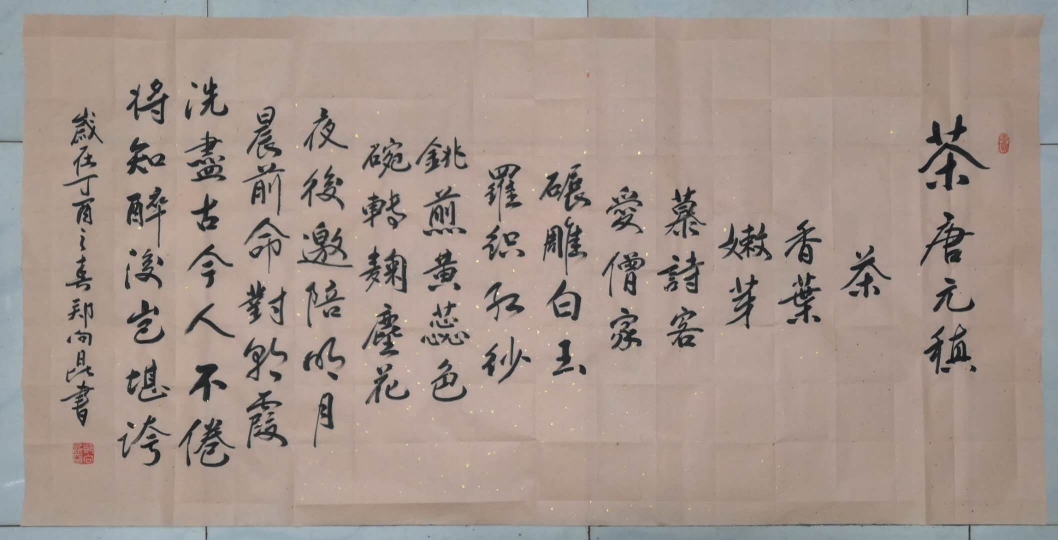 茶唐元稹
茶
香葉
嫩芽
慕詩客
愛僧家
碾雕白玉
羅织红纱
銚煎黄蕊色
碗轉麴塵花
夜後邀陪明月
晨前命對朝霞
洗盡古今人不倦
将知醉後岂堪誇
歲在丁酉之春郑向昆書